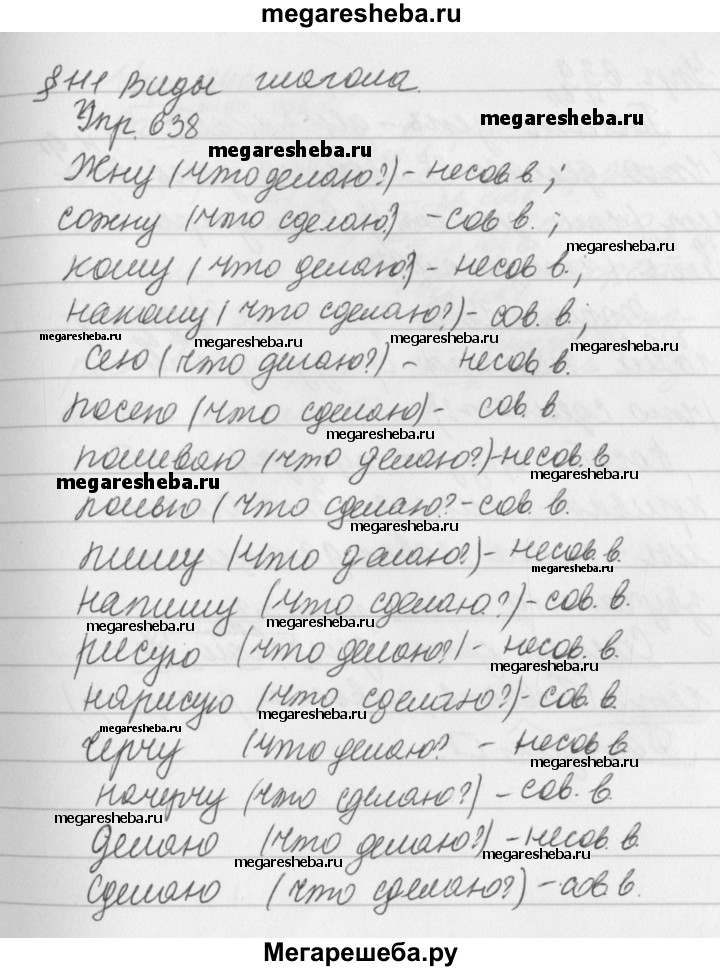 megaresheba.ru
§ 111 Виды глагола.
Упр. 638
megaresheba.ru
megaresheba.ru
Жну (что делаю?) – несов. в.;
сожну (что сделаю?) – сов в.;
megaresheba.ru
кошу (что делаю?) – несов в.;
накошу (что сделаю?) – сов. в.;
megaresheba.ru megaresheba.ru megaresheba.ru megaresheba.ru
сею (что делаю?) – несов в.
посею (что сделаю) – сов. в.
megaresheba.ru
поливаю (что делаю?) – несов. в
megaresheba.ru megaresheba.ru
полью (что сделаю? – сов. в.
megaresheba.ru
пишу (что делаю?) – несов. в.
megaresheba.ru
напишу (что сделаю?) – сов. в.
megaresheba.ru megaresheba.ru
рисую (что делаю?) – несов. в.
megaresheba.ru
нарисую (что сделаю?) – сов. в.
megaresheba.ru
megaresheba.ru
черчу (что делаю? – несов в.
megaresheba.ru
начерчу (что сделаю?) – сов. в.
megaresheba.ru
делаю (что делаю?) – несов. в.
megaresheba.ru megaresheba.ru
сделаю (что сделаю?) – сов. в.
Мегарешеба.ру